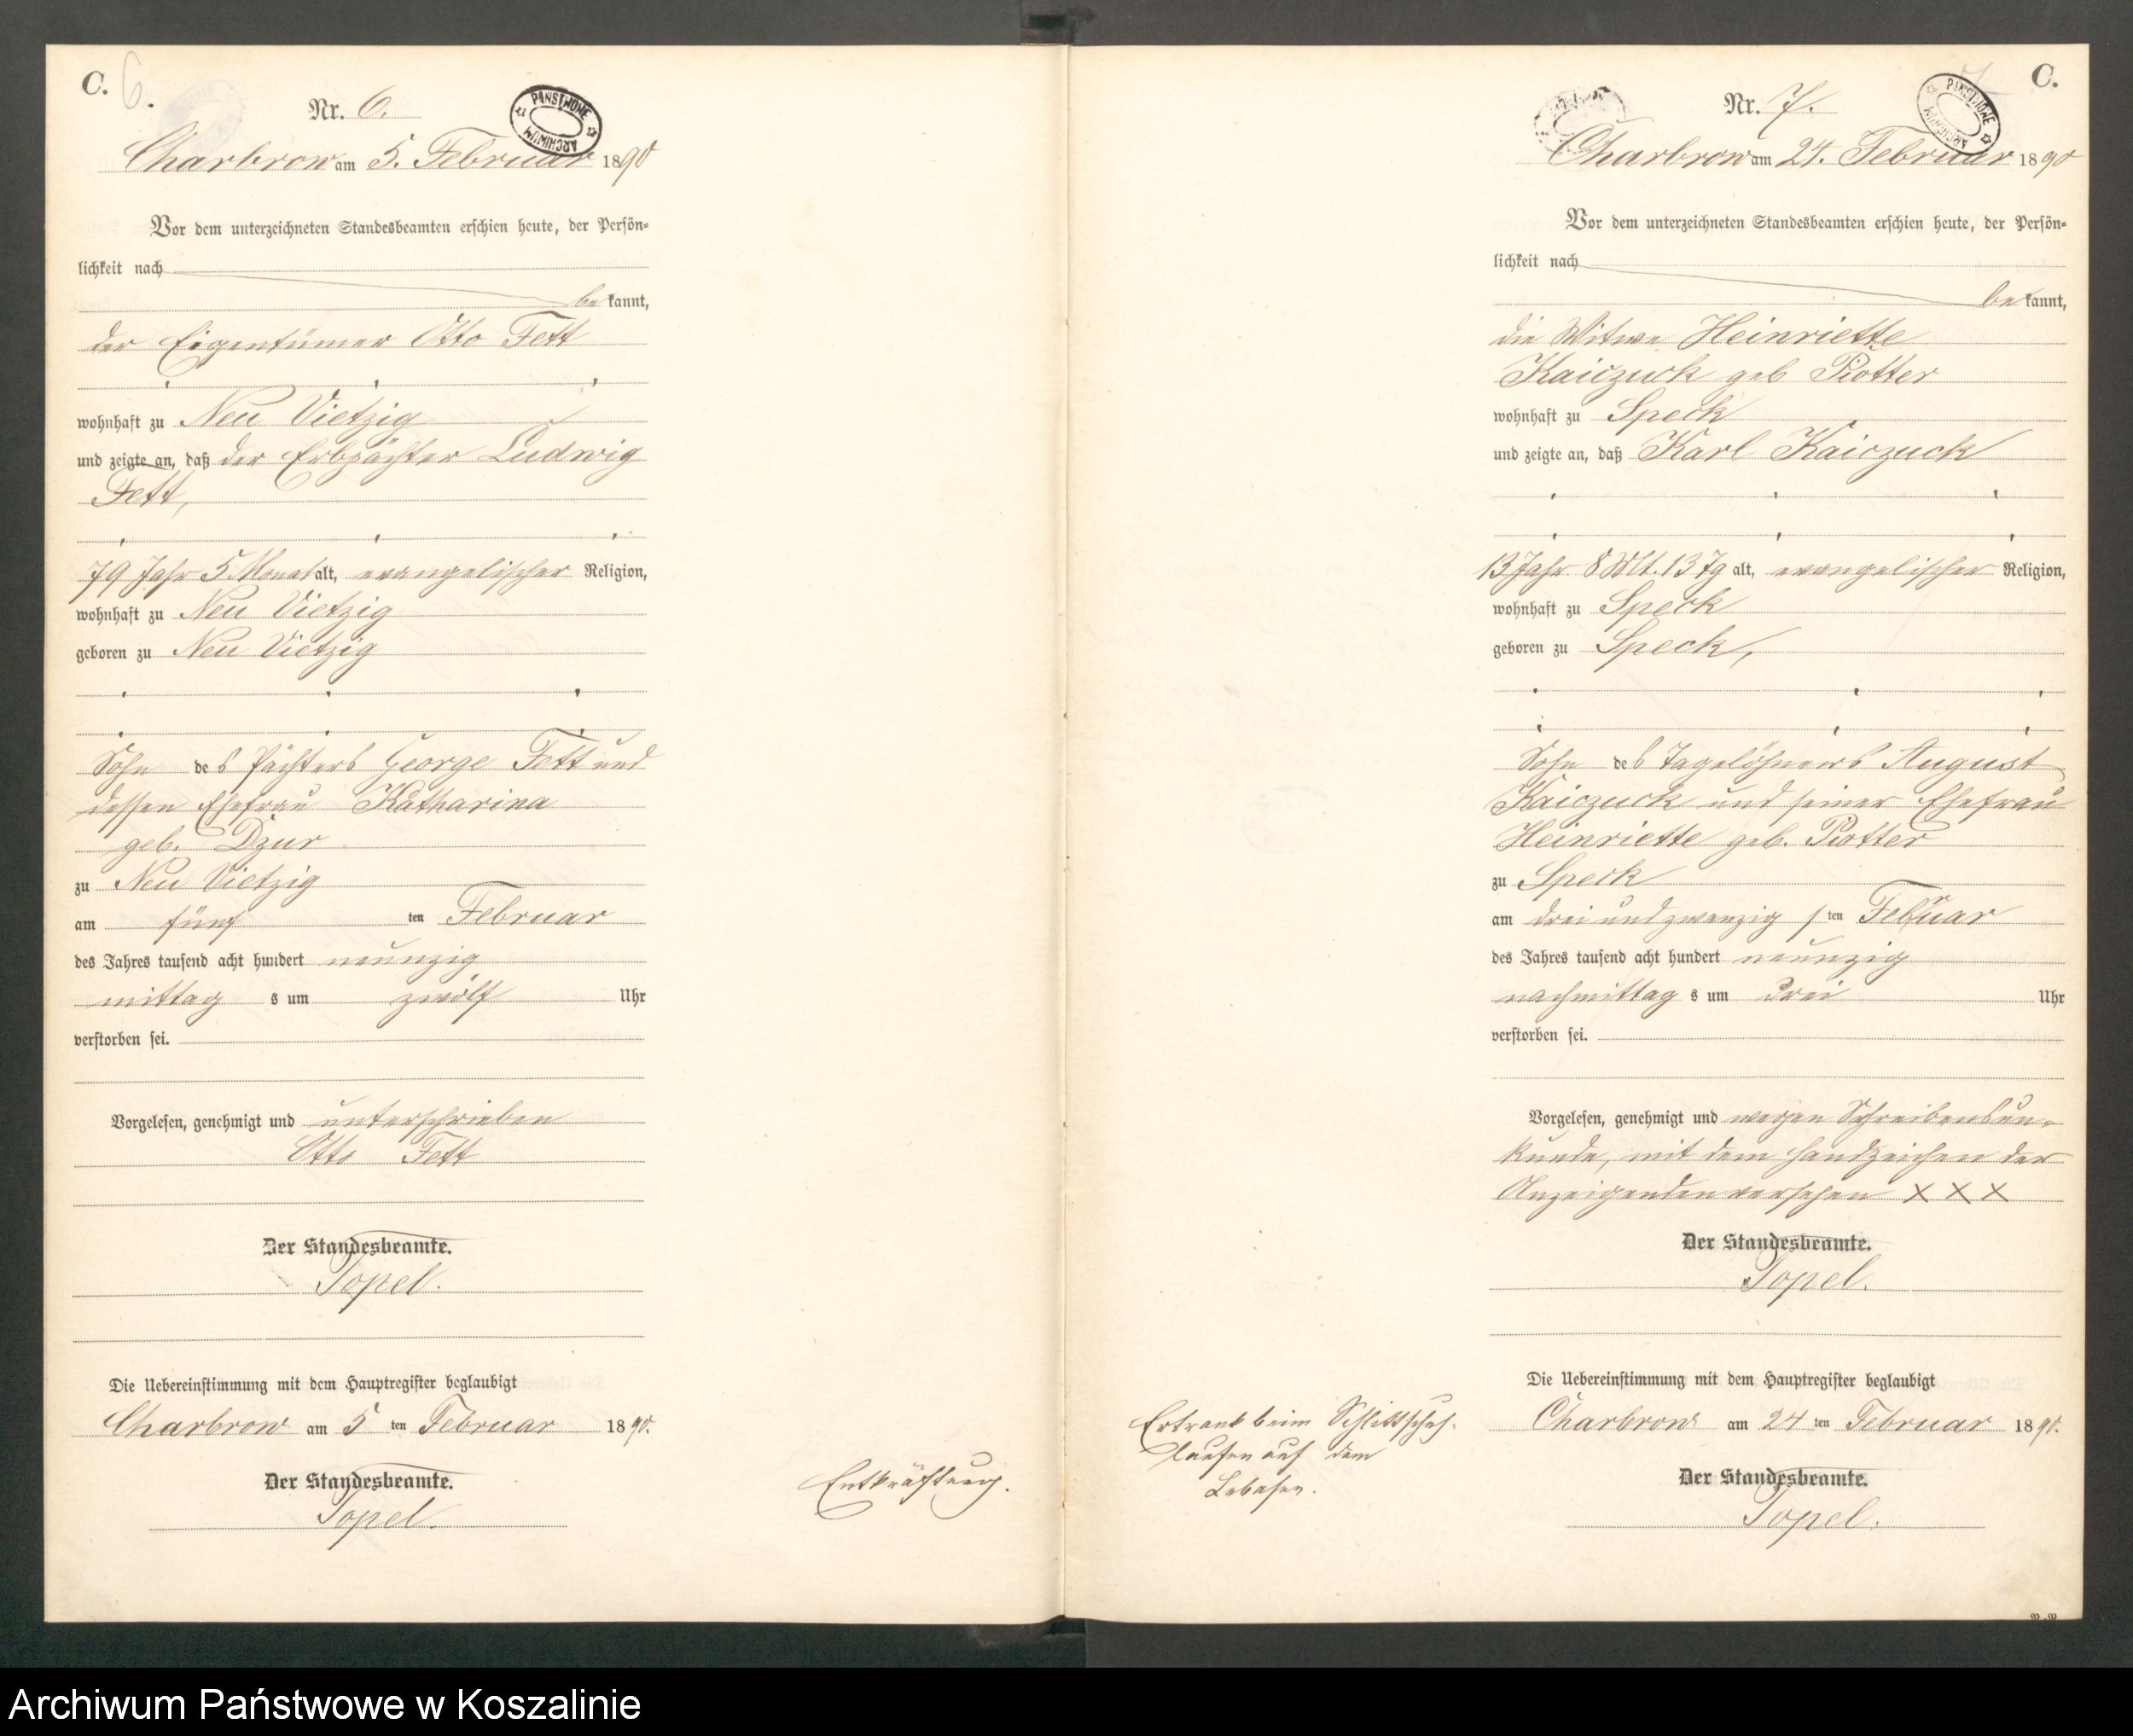 C. 6.
Nr. 6.
PAŃSTWOWE ARCHIWUM
Charbrow am 5. Februar 1890
Vor dem unterzeichneten Standesbeamten erschien heute, der Persön-
lichkeit nach
bekannt,
der Eigentümer Otto Fett
wohnhaft zu Neu Vietzig
und zeigte an, daß der Erbpächter Ludwig
Fett,
79 Jahr 5 Monat alt, evangelischer Religion,
wohnhaft zu Neu Vietzig
geboren zu Neu Vietzig
Sohn des Pächters George Fett und
dessen Ehefrau Katharina
geb. Dzur
zu Neu Vietzig
am fünf ten Februar
des Jahres tausend acht hundert neunzig
mittag s um zwölf Uhr
verstorben sei.
Vorgelesen, genehmigt und unterschrieben
Otto Fett
Der Standesbeamte.
Topel.
Die Uebereinstimmung mit dem Hauptregister beglaubigt
Charbrow am 5 ten Februar 1890.
Der Standesbeamte.
Topel.
Entkräftung.
C.
Nr. 7.
PAŃSTWOWE ARCHIWUM
Charbrow am 24. Februar 1890
Vor dem unterzeichneten Standesbeamten erschien heute, der Persön-
lichkeit nach
bekannt,
die Witwe Heinriette
Kaiczuck geb Piotter
wohnhaft zu Speck
und zeigte an, daß Karl Kaiczuck
13 Jahr 8 Mt. 13 Tg alt, evangelischer Religion,
wohnhaft zu Speck
geboren zu Speck,
Sohn des Tagelöhners August
Kaiczuck und seiner Ehefrau
Heinriette geb. Piotter
zu Speck
am drei und zwanzigsten Februar
des Jahres tausend acht hundert neunzig
nachmittag s um drei Uhr
verstorben sei.
Vorgelesen, genehmigt und wegen Schreibensun-
kunde, mit dem Handzeichen der
Anzeigenden versehen XXX
Der Standesbeamte.
Topel.
Die Uebereinstimmung mit dem Hauptregister beglaubigt
Charbrow am 24 ten Februar 1890.
Der Standesbeamte.
Topel.
Ertrank beim Schlittschuh-
laufen auf dem
Lebasee.
Archiwum Państwowe w Koszalinie